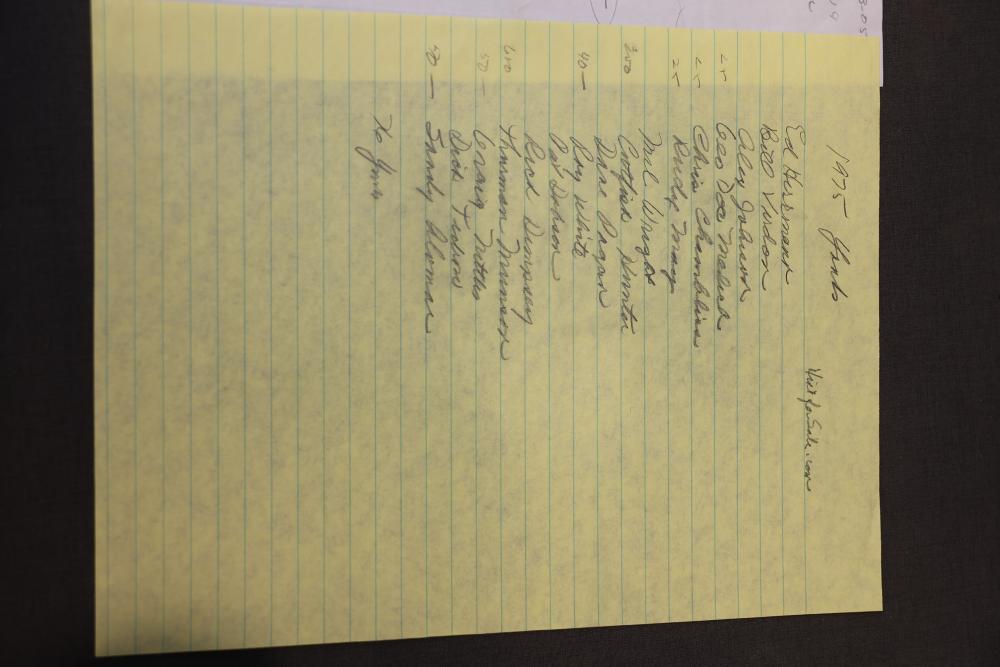 1975 Yanks
Ed Herrmann
Bill Virdon
Alex Johnson
25 Geo Doc Medich
25 Chris Chambliss
25 Rudy May
Mel Wright
300 Catfish Hunter
Dave Pagan
40 - Roy White
Pat Dobson
Rick Dempsey
600 Thurman Munson
50 - Graig Nettles
Dick Tidrow
40 — Sandy Alomar